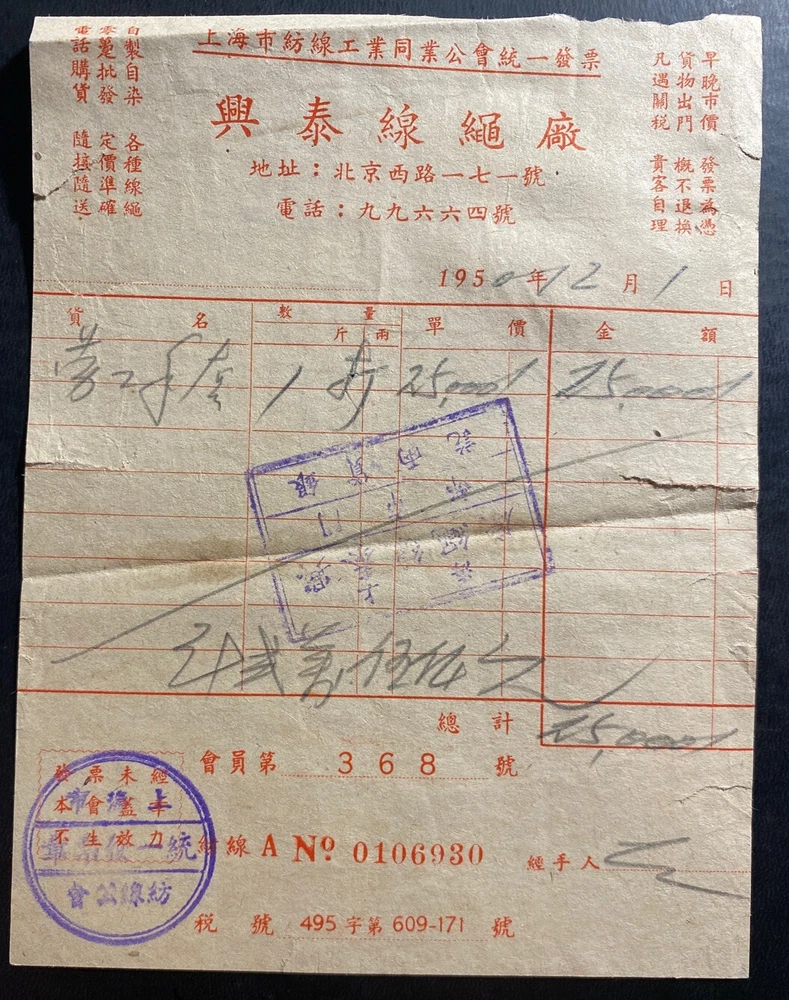 上海市紡線工業同業公會統一發票
興泰線繩廠
地址：北京西路一七一號
電話：九九六六四號
早晚市價 發票為憑
貨物出門 概不退換
凡遇關稅 貴客自理
自製自染 各種線繩
零躉批發 定價準確
電話購貨 隨接隨送
1950年12月1日
貨名 數量 斤兩 單價 金額
勞工手套 1 打 25,000 25,000
貳萬伍仟
總計 25,000
會員第 368 號
經未票發
章蓋會本
力效生不
上海市
統一發票
紡線公會
紡線 A Nº 0106930 經手人
稅號 495字第609-171號